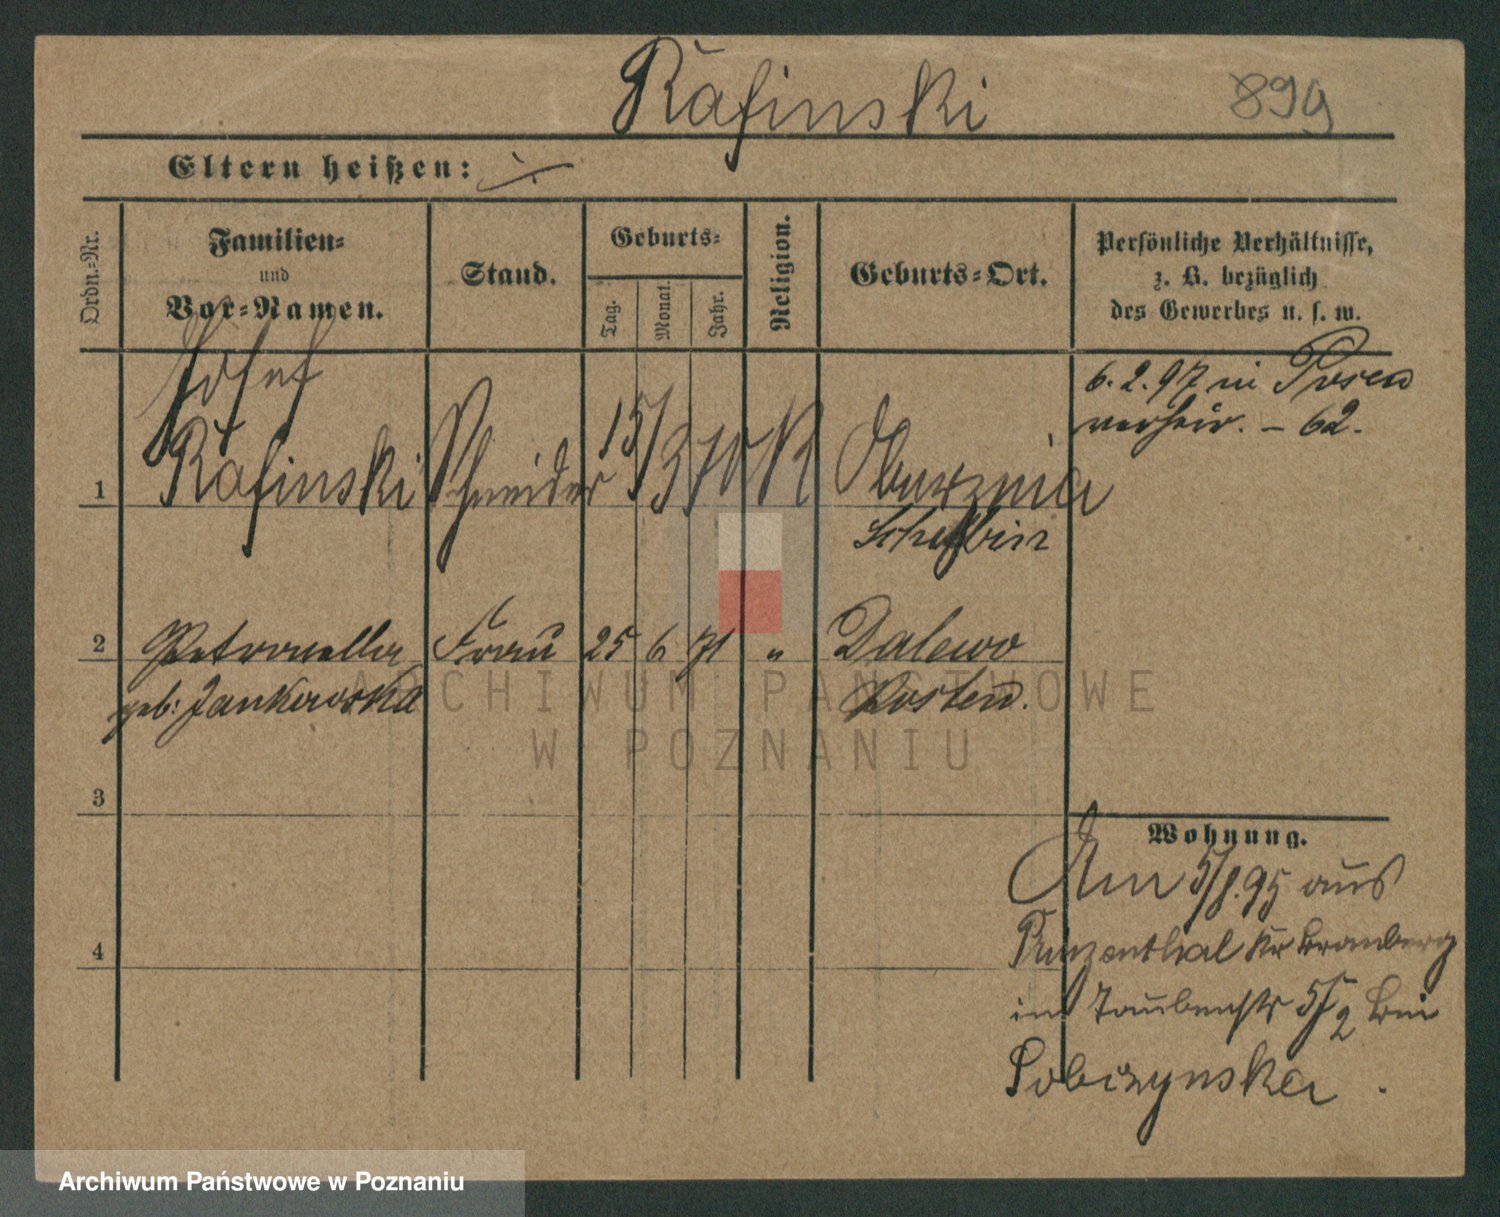 Rafinski 899
Eltern heißen: ./.
Ordn.=Nr.
Familien=
und
Vor=Namen.
Stand.
Geburts=
Tag.
Monat.
Jahr.
Religion.
Geburts=Ort.
Persönliche Verhältnisse,
z. B. bezüglich
des Gewerbes u. s. w.
6. 2. 97 in Posen
verheir. – 62.
Josef
1 Rafinski Schneider 15/3 70 K
2 Petronella Frau 25 6 71 " Dalewo
geb: Jankowska Kosten.
3
4
Wohnung.
Am 5/8. 95 aus
Prinzenthal Kr Bromberg
in Taubenstr 5/2 bei
Sobczynska.
ARCHIWUM PAŃSTWOWE
W POZNANIU
Archiwum Państwowe w Poznaniu